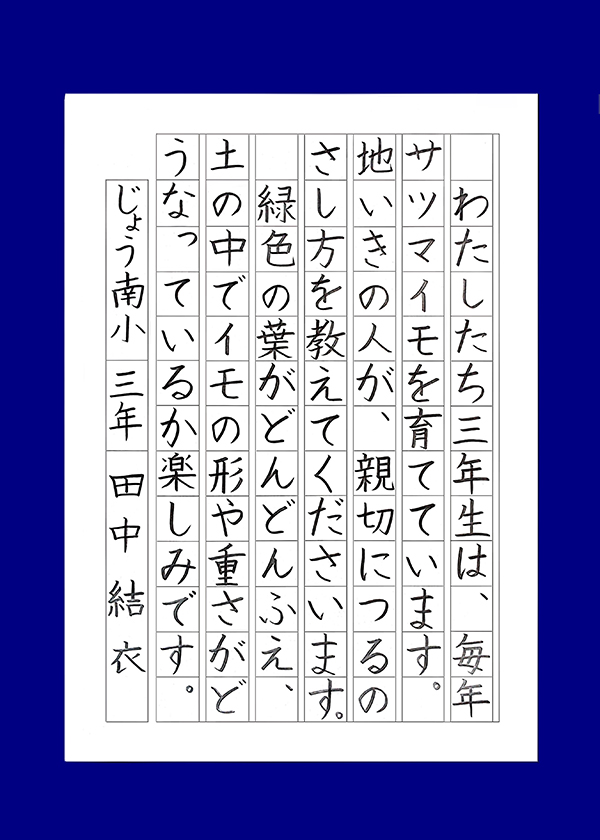 わたしたち三年生は、毎年
サツマイモを育てています。
地いきの人が、親切につるの
さし方を教えてくださいます。
緑色の葉がどんどんふえ、
土の中でイモの形や重さがど
うなっているか楽しみです。
じょう南小 三年 田中結衣